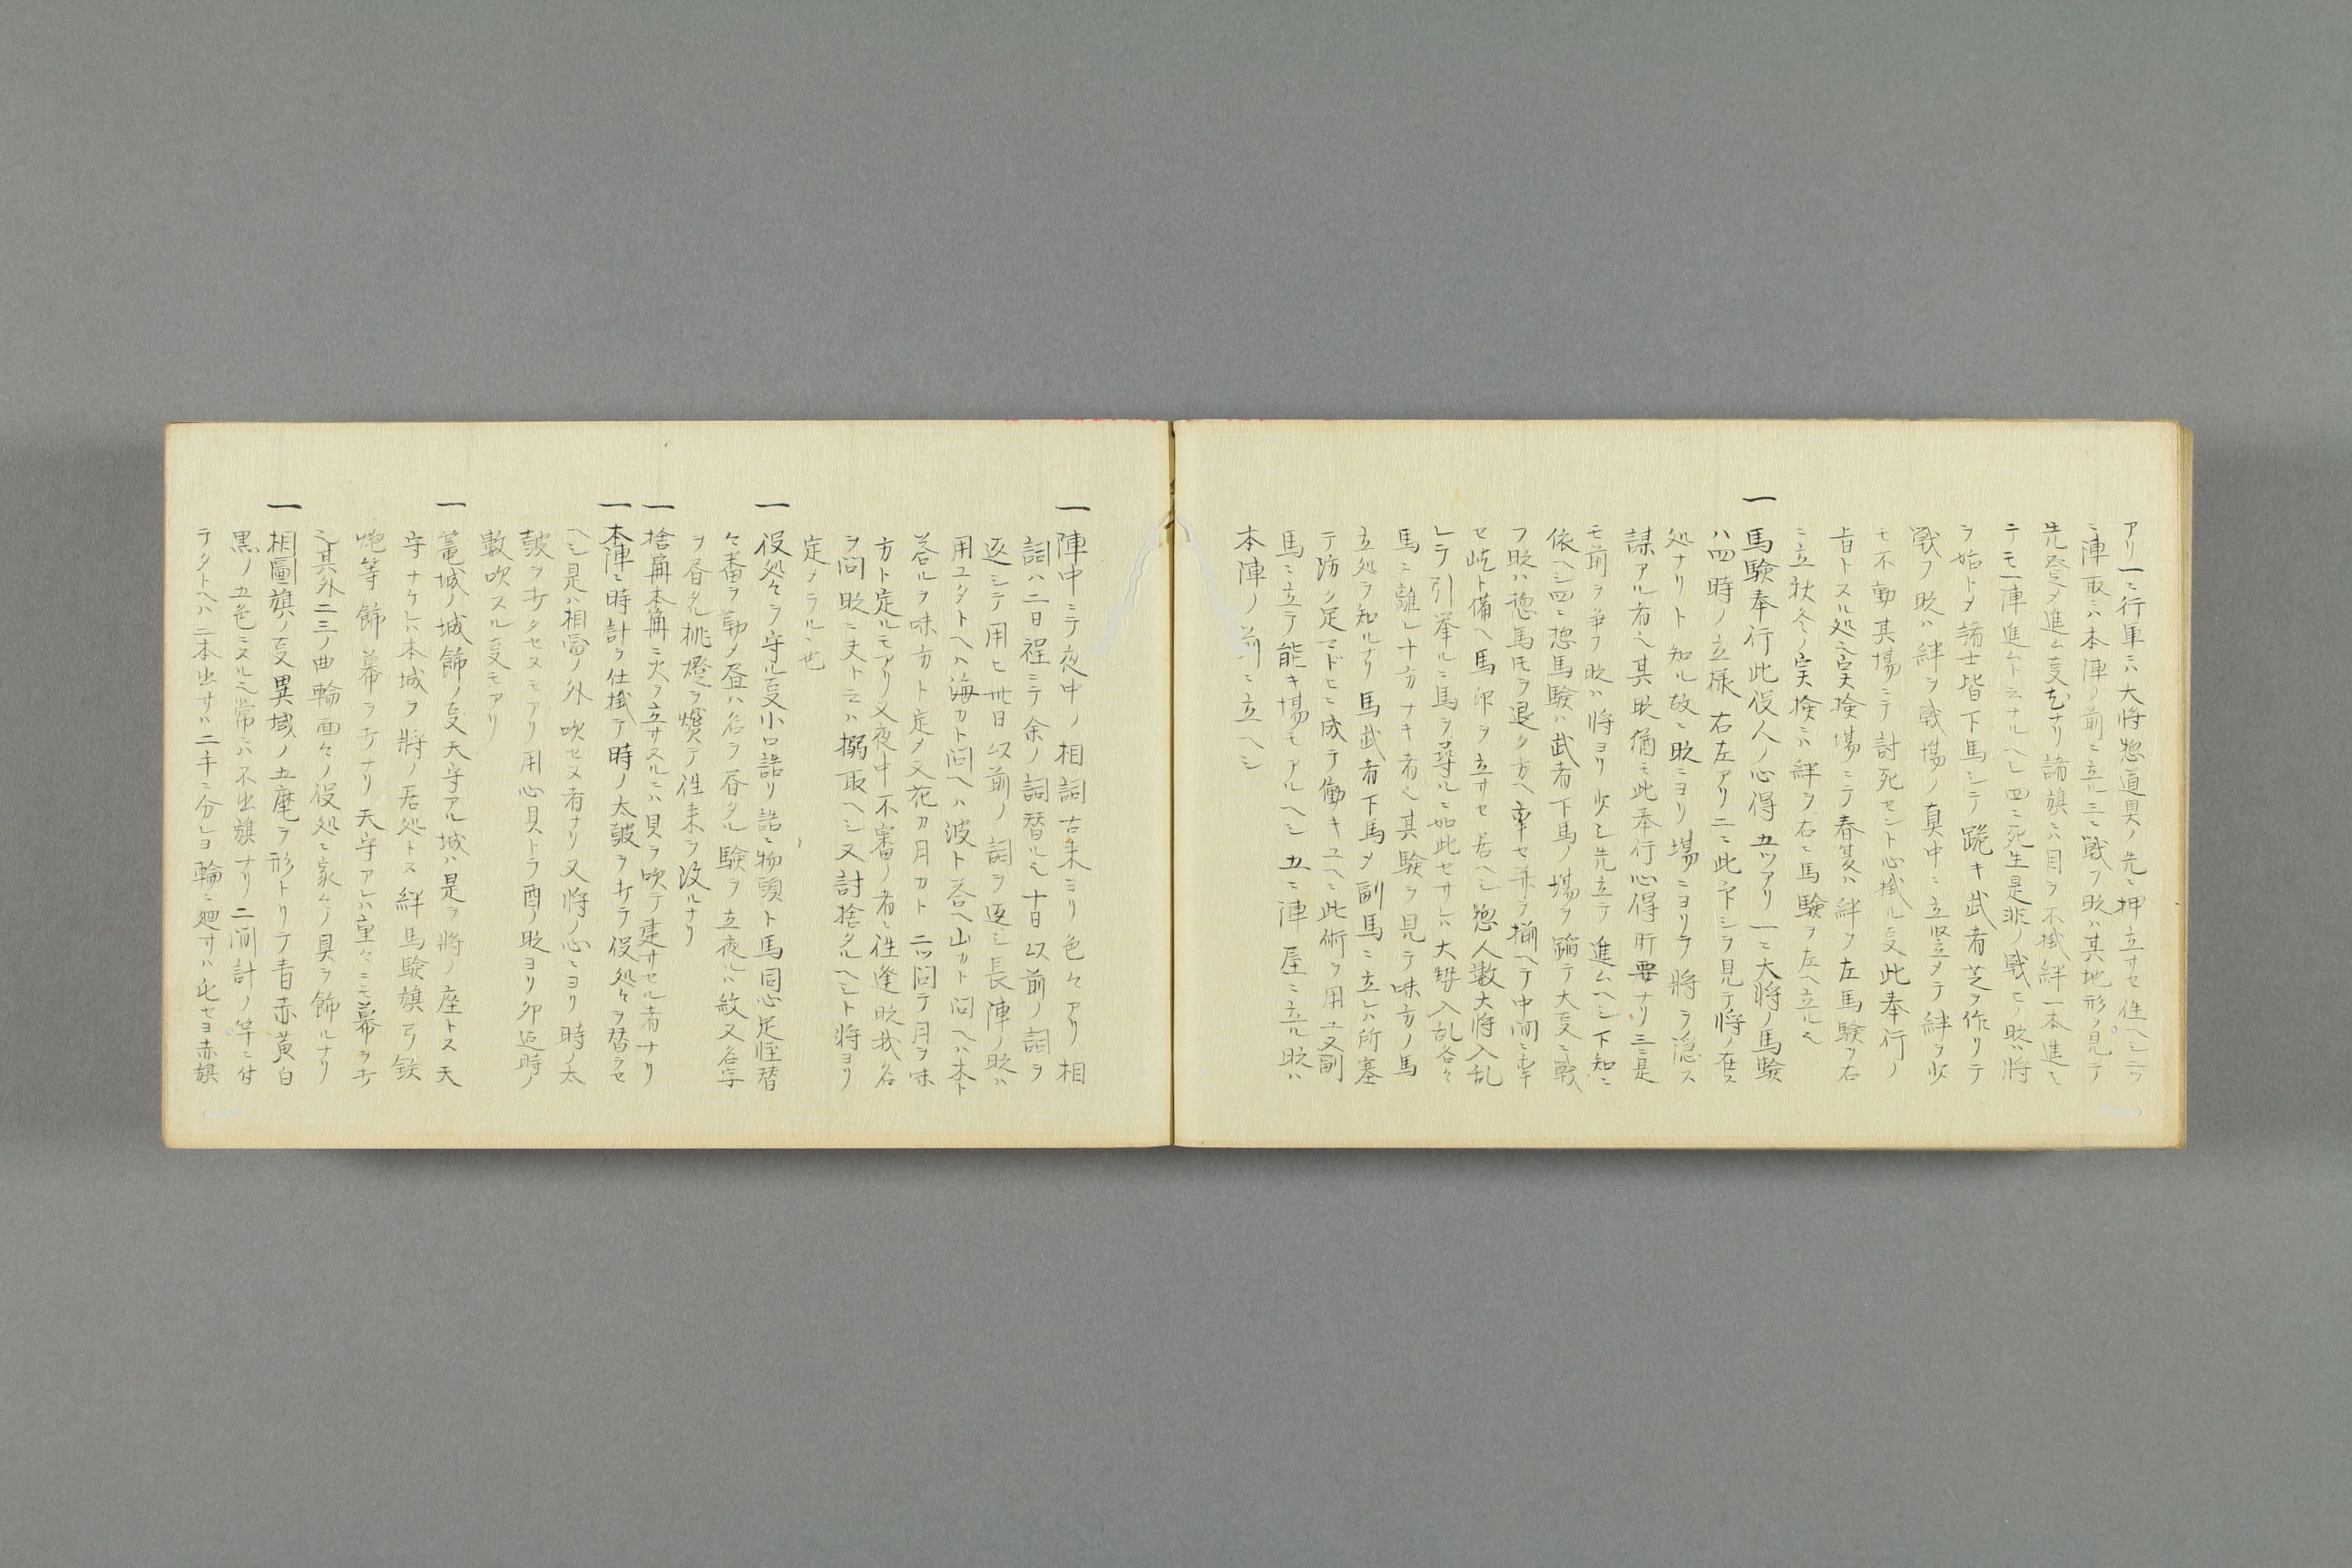 アリ一ニ行軍ニハ大将惣道具ノ先ニ押立サセ往ヘシ二ツ
ニ陣取ニハ本陣ノ前ニ立ル三ニ戦フ時ハ其地形ヲ見テ
先登メ進ム事尤ナリ諸旗ニハ目ヲ不掛絆一本進ミ
テモ一陣進ムト云ナルヘシ四ニ死生是非ノ戦ヒノ時ハ将
ヲ始トメ諸士皆下馬シテ跪キ武者芝ヲ作リテ
戦フ時ハ絆ヲ戦場ノ真中ニ立竪メテ絆ヲ少
モ不動其場ニテ討死セント心掛ル事此奉行ノ
旨トスル処ニ実検場ニテ春夏ハ絆ヲ左馬験ヲ右
ニ立秋冬ノ実検ニハ絆ヲ右ニ馬験ヲ左ヘ立ル也
一馬験奉行此役人ノ心得五ツアリ一ニ大将ノ馬験
ハ四時ノ立様右左アリ二ニ此印シヲ見テ将ノ在ス
処ナリト知ル故ニ時ニヨリ場ニヨリテ将ヲ隠ス
謀アル者ヘ其時猶モ此奉行心得肝要ナリ三ニ是
モ前ヲ争フ時ハ将ヨリ少シ先立テ進ムヘシ下知ニ
依ヘシ四ニ惣馬験ハ武者下馬ノ場ヲ踏テ大事ニ戦
フ時ハ惣馬モヲ退ク方ヘ牽セ亦ヲ揃ヘテ中間ニ牽
セ屹ト備ヘ馬印ヲ立サセ居ヘシ惣人数大将入乱
レテ引挙ルニ馬ヲ尋ルニ如此セサレハ大勢入乱各々
馬ニ離レ十方ナキ者也其験ヲ見テ味方ノ馬
立処ヲ知ルナリ馬武者下馬メ副馬ニ立レハ所塞
テ防ク足マドヒニ成テ働キユヘニ此術ヲ用ユ又副
馬ニ立テ能キ場モアルヘシ五ニ陣屋ニ立ル時ハ
本陣ノ前ニ立ヘシ
一陣中ニテ夜中ノ相詞古来ヨリ色々アリ相
詞ハ二日程ニテ余ノ詞替ル也十日以前ノ詞ヲ
返シテ用ヒ卅日以前ノ詞ヲ返シ長陣ノ時ハ
用ユタトヘハ海カト問ヘハ波ト答ヘ山カト問ヘハ木ト
答ルヲ味方ト定メ又花カ月カト二ツ問テ月ヲ味
方ト定ルモアリ又夜中不審ノ者ニ往逢時我名
ヲ問時ニ夫ト云ハ搦取ヘシ又討捨タルヘシト将ヨリ
定メラルヽ也
一役処々ヲ守ル事小口詰リ詰ニ物頭ト馬同心足軽替
々番ヲ勤メ昼ハ名ヲ呑タル験ヲ立夜ルハ紋又名字
ヲ呑タル桃燈ヲ燃テ往来ヲ改ルナリ
一捨篝本篝ニ火ヲ立サスルニハ貝ヲ吹テ建サセル者ナリ
一本陣ニ時計ヲ仕掛テ時ノ太皷ヲ打テ役処々ヲ替ラセ
ヘシ是ハ相図ノ外吹セヌ者ナリ又将ノ心ニヨリ時ノ太
皷ヲ打タセヌモアリ用心貝トラ酉ノ時ヨリ卯迄時ノ
數吹スル事モアリ
一篭城ノ城飾ノ事天守アル城ハ是ヲ将ノ座トス天
守ナケレハ本城ヲ将ノ居処トス絆馬験旗弓鉄
炮等飾幕ヲ打ナリ天守アレハ重々ニモ幕ヲ打
也其外二三ノ曲輪面々ノ役処ニ家々ノ具ヲ飾ルナリ
一相圖旗ノ事異域ノ五麾ヲ形トリテ青赤黄白
黒ノ五色ニスル也常ニハ不出旗ナリ二間計ノ竿ニ付
テタトヘハ二本出サハ二手ニ分レヨ輪ニ廻サハ屯セヨ赤旗